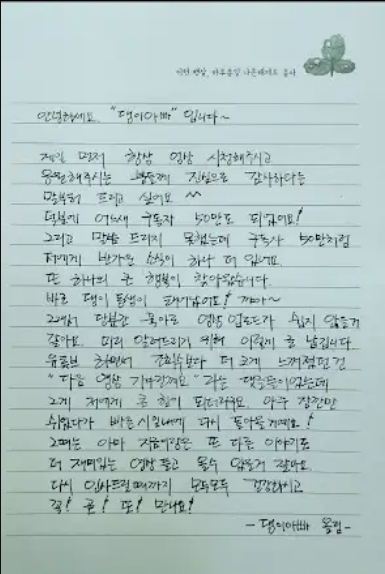 안녕하세요. "댕이아빠" 입니다~
제일 먼저 항상 영상 시청해주시고
응원해주시는 분들께 진심으로 감사하다는
말부터 드리고 싶어요 ^^
덕분에 어느새 구독자 50만도 되었어요!
그리고 말씀 드리지 못했는데 구독자 50만처럼
저에게 반가운 소식이 하나 더 있어요.
또 하나의 큰 행복이 찾아왔습니다.
바로 댕이 동생이 태어났어요! 꺄아~
그래서 당분간 육아로 영상 업로드가 쉽지 않을거
같아요. 미리 알려드리기 위해 이렇게 글 남깁니다.
유튜브 하면서 조회수보다 더 크게 느껴졌던건
"다음 영상 기다릴게요" 라는 댓글들이었는데
그게 저에게 큰 힘이 되더라구요. 아주 잠깐만
쉬었다가 빠른 시일내에 다시 돌아올게예요!
그때는 아마 지금이랑은 또 다른 이야기로
더 재미있는 영상 들고 올수 있을거 같아요.
다시 인사드릴때까지 모두모두 건강하시고
꼭! 곧! 또! 만나요!
- 댕이아빠 올림 -